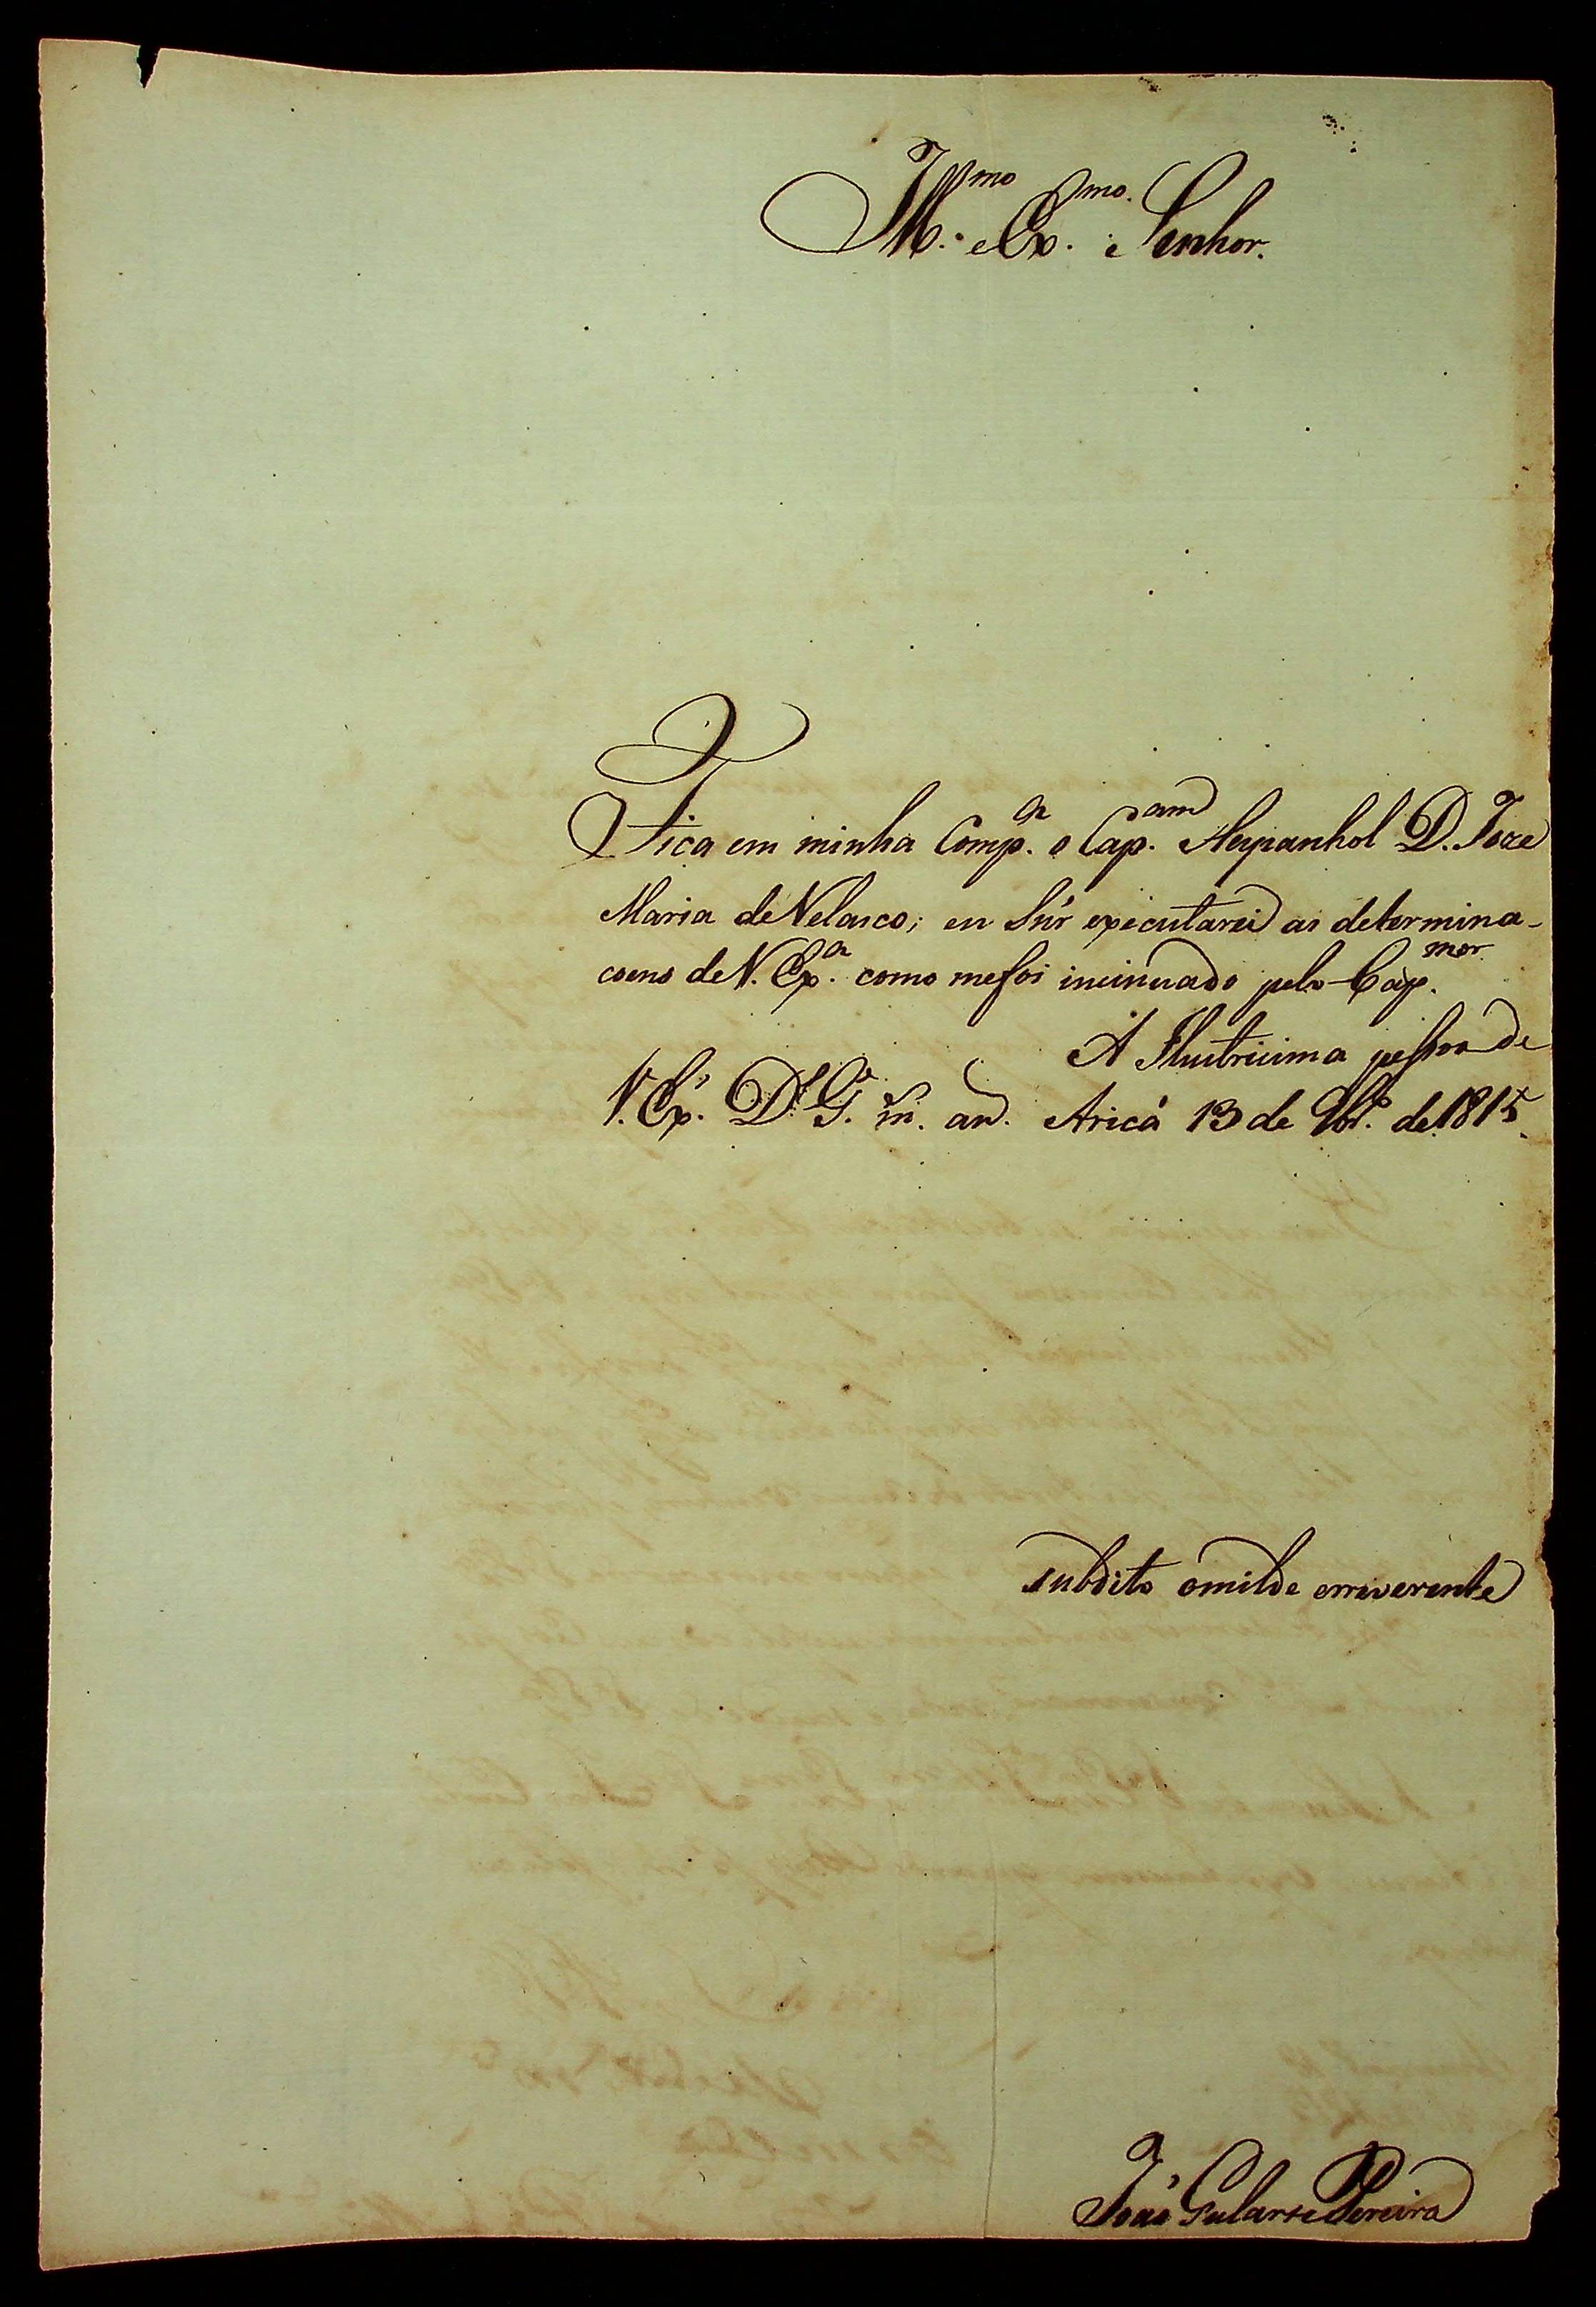 Ill.mo e Ex.mo Senhor.
Fica em minha Comp.a o Cap.am Hespanhol D. Joze
Maria de Velasco; eu Snr executarei as determina-
coens de V. Ex.a como me foi incinuado pelo Cap.mor
A Ilustricima pessoa de
V. Ex.a D.s G.e m. an. Aricá 13 de 9br.o de 1815
subdito omilde erreverente
João Gularte Pereira